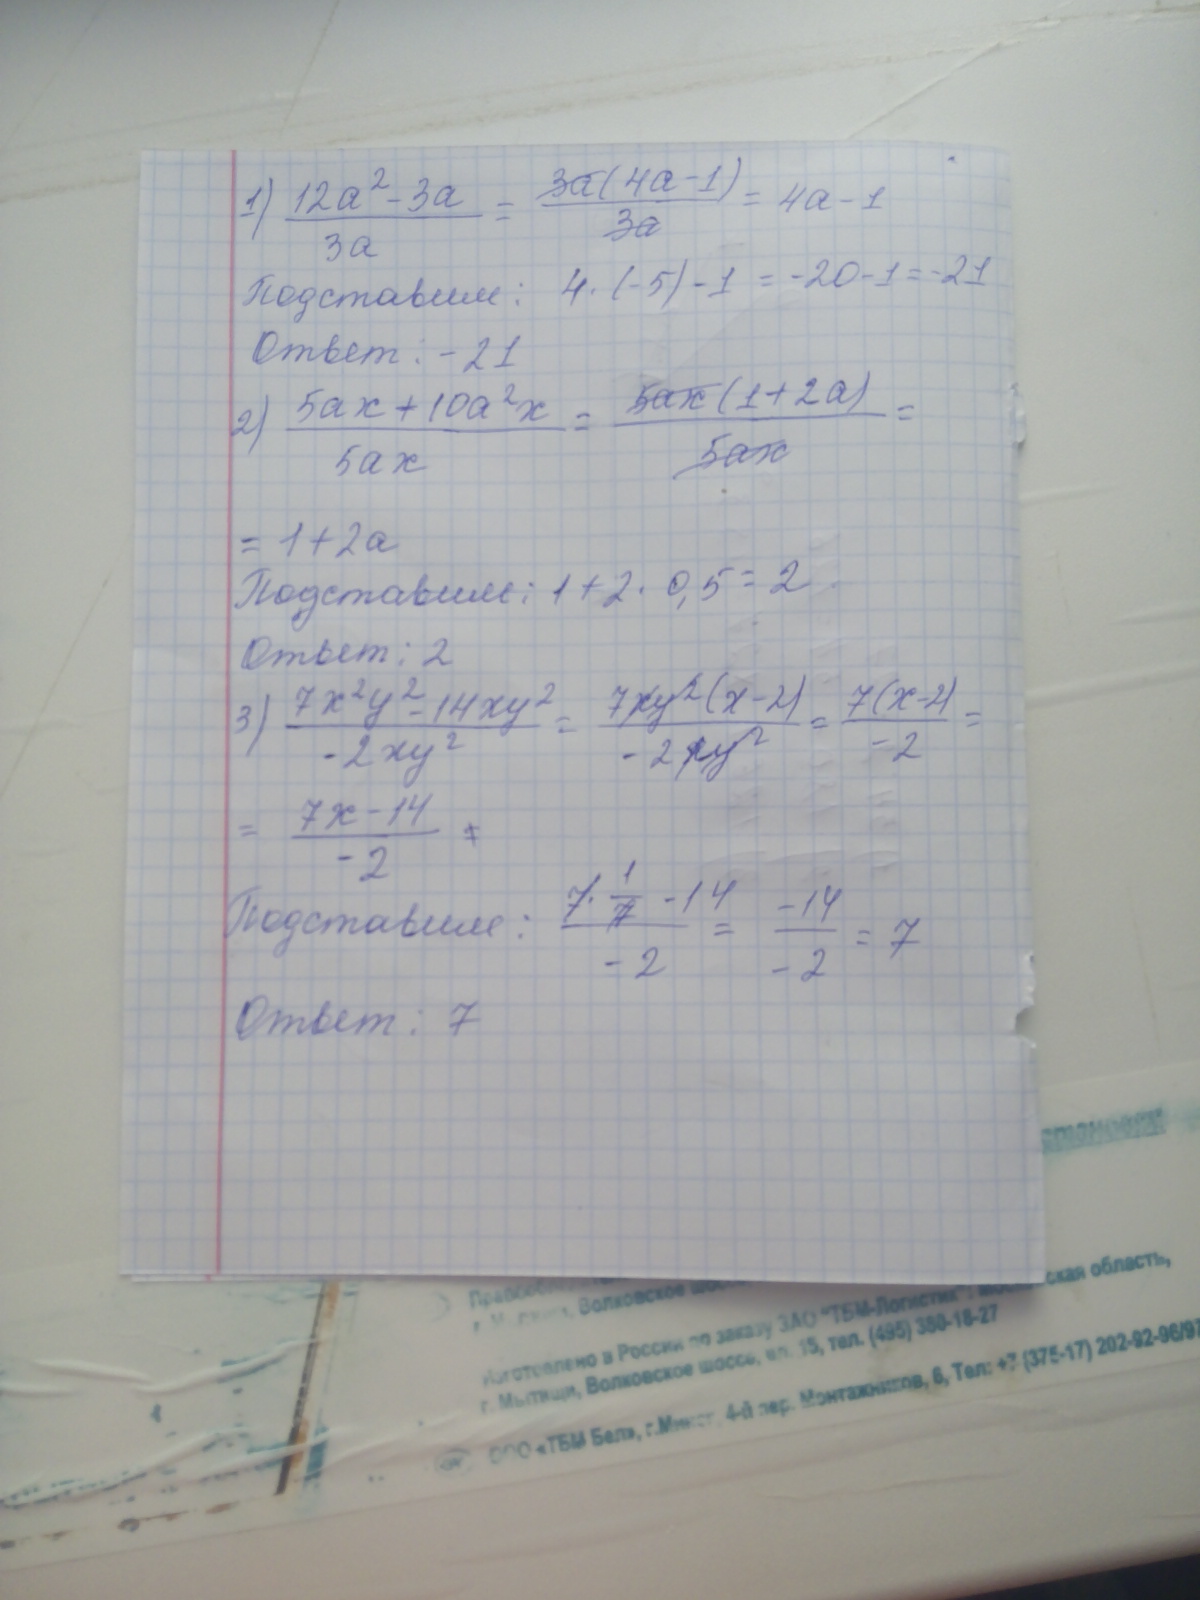 1) (12a² - 3a)/(3a) = (3a(4a-1))/(3a) = 4a-1
Подставим: 4·(-5)-1 = -20-1=-21
Ответ: -21
2) (5ax+10a²x)/(5ax) = (5ax(1+2a))/(5ax) =
= 1+2a
Подставим: 1+2·0,5=2
Ответ: 2
3) (7x²y²-14xy²)/(-2xy²) = (7xy²(x-2))/(-2xy²) = (7(x-2))/(-2) =
= (7x-14)/(-2) =
Подставим: (7·1/7 -14)/(-2) = (-14)/(-2) = 7
Ответ: 7
г. М Волковское
Изготовлено в России по заказу ЗАО "ТБМ-Логистик": московская область,
г. Мытищи, Волковское шоссе, вл. 15, тел. (495) 380-18-27
ООО «ТБМ Бел», г.Минск, 4-й пер. Монтажников, 6, Тел: +7 (375-17) 202-92-96/97